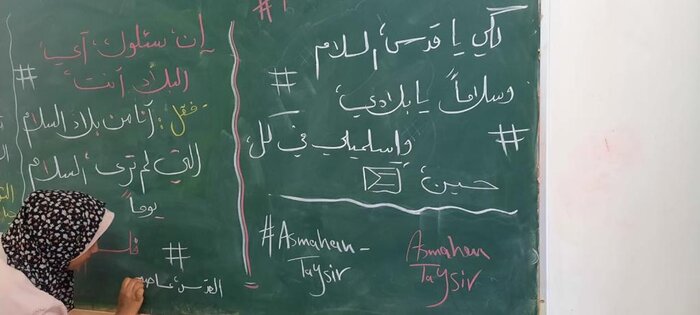 لكي يا قدس، السلام
#
وسلاماً يا بلادي،
#
واسلميلي في كل،
حين،
#Asmahan-
Taysir
Asmahan
Taysir
#
إن، سئلوك، أي،
البلاد أنت،
#
فقل: أنا من بلاد السلام
التي لم ترى السلام
يوماً
فلس
#
القدس، عاصم